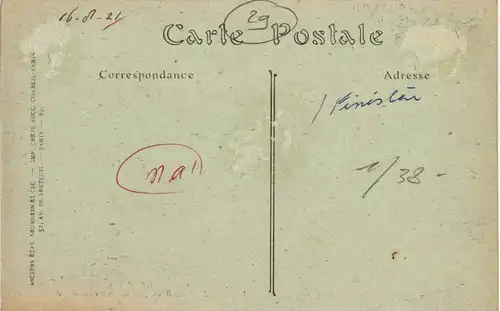 16-8-21
29
Carte Postale
Correspondance
Adresse
Finistère
1/38-
ANCIENS ETAB. NEURDEIN ET CIE. — IMP. CRÉTÉ SUCC. CORBEIL-PARIS
52, AV. DE BRETEUIL. — PARIS